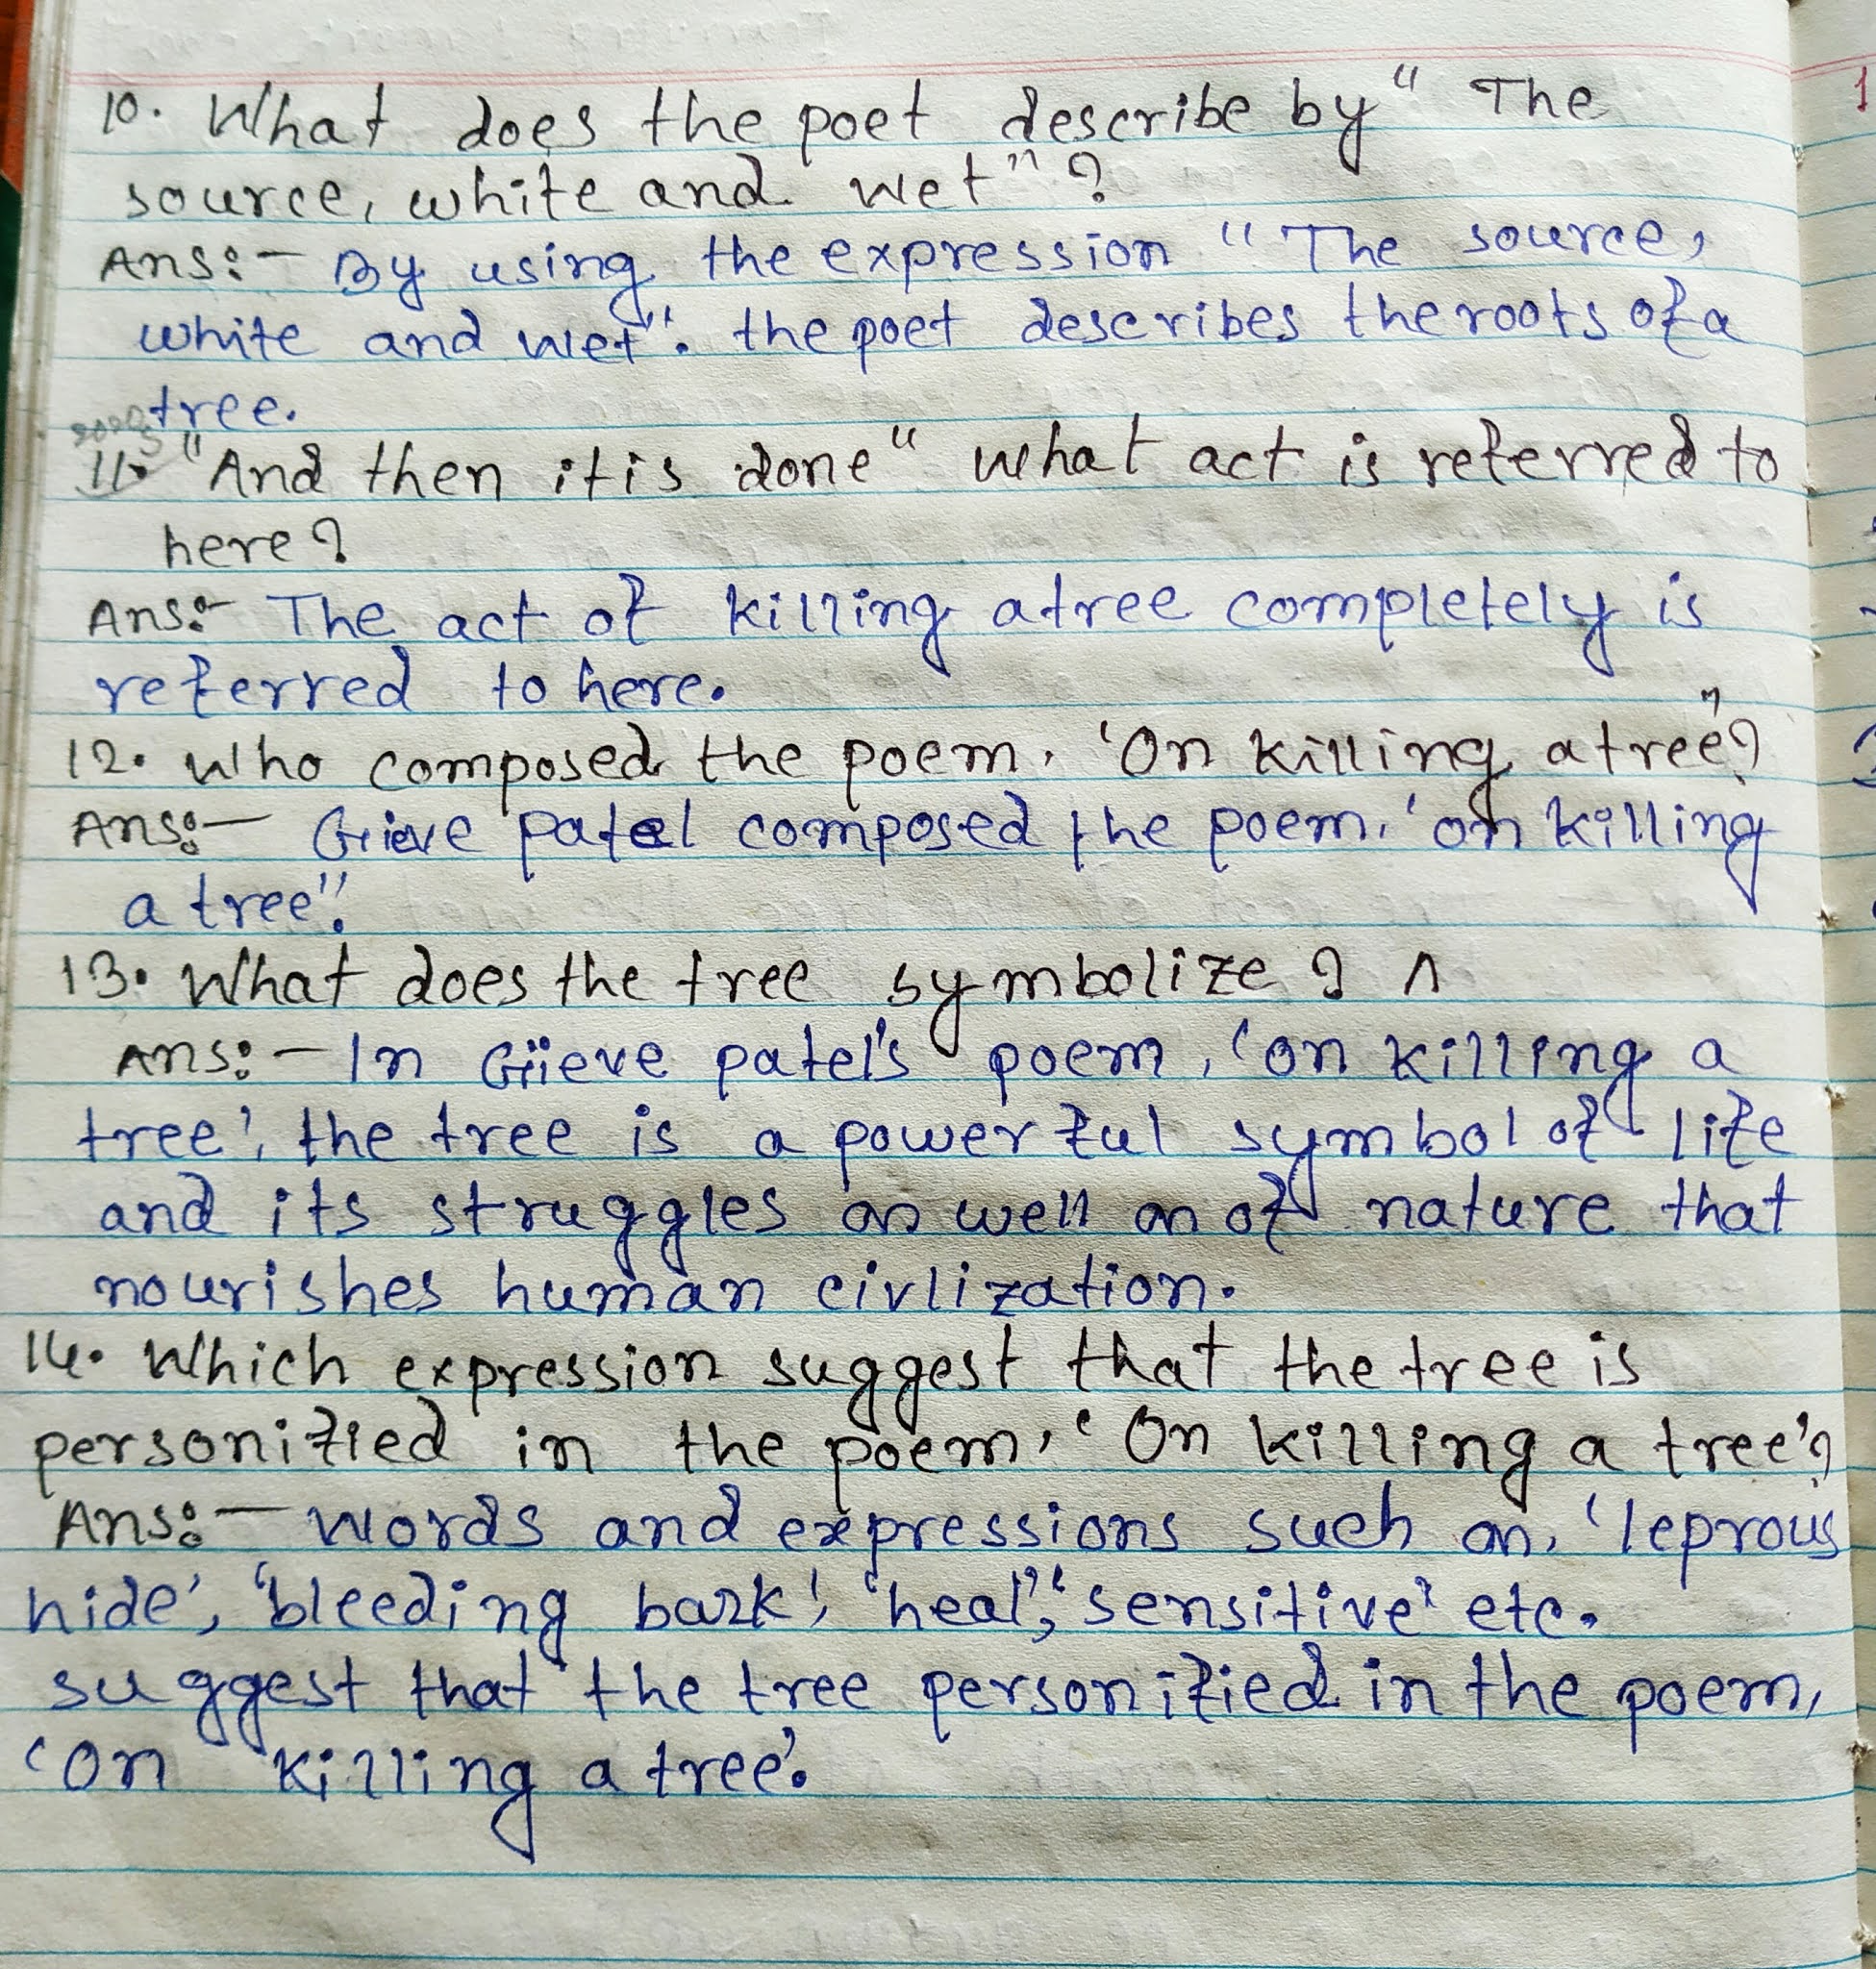 10. What does the poet describe by “ The
source, white and wet” ?
Ans:- By using the expression “ The source,
white and wet”. the poet describes the roots of a
tree.
11. “And then it is done“ what act is referred to
here?
Ans:- The act of killing a tree completely is
referred to here.
12. Who composed the poem, ‘On killing a tree”?
Ans:- Grieve patel composed the poem, ‘on killing
a tree”.
13. What does the tree symbolize ?
Ans:- In Giieve patel's poem, ‘on killing a
tree’, the tree is a powerful symbol of life
and its struggles as well as of nature that
nourishes human civlization.
14. Which expression suggest that the tree is
personified in the poem, ‘On killing a tree’?
Ans:- words and expressions such as, ‘leprous
hide’, ‘bleeding bark’, ‘heal’, ‘sensitive’ etc.
suggest that the tree personified in the poem,
‘on killing a tree’.